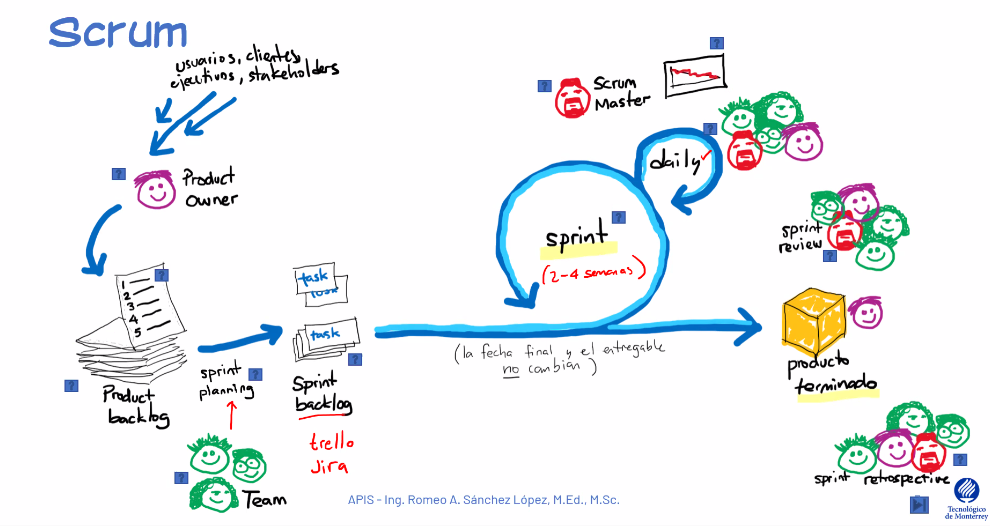 Scrum
usuarios, clientes,
ejecutivos, stakeholders
Product
owner
1
2
3
4
5
Product
backlog
sprint
planning
Team
task
task
task
Sprint
backlog
trello
Jira
sprint
(2-4 semanas)
daily
Scrum
Master
(la fecha final y el entregable
no cambian)
sprint
review
producto
terminado
sprint retrospective
APIS - Ing. Romeo A. Sánchez López, M.Ed., M.Sc.
Tecnológico
de Monterrey
?
?
?
?
?
?
?
?
?
?
?
?
?